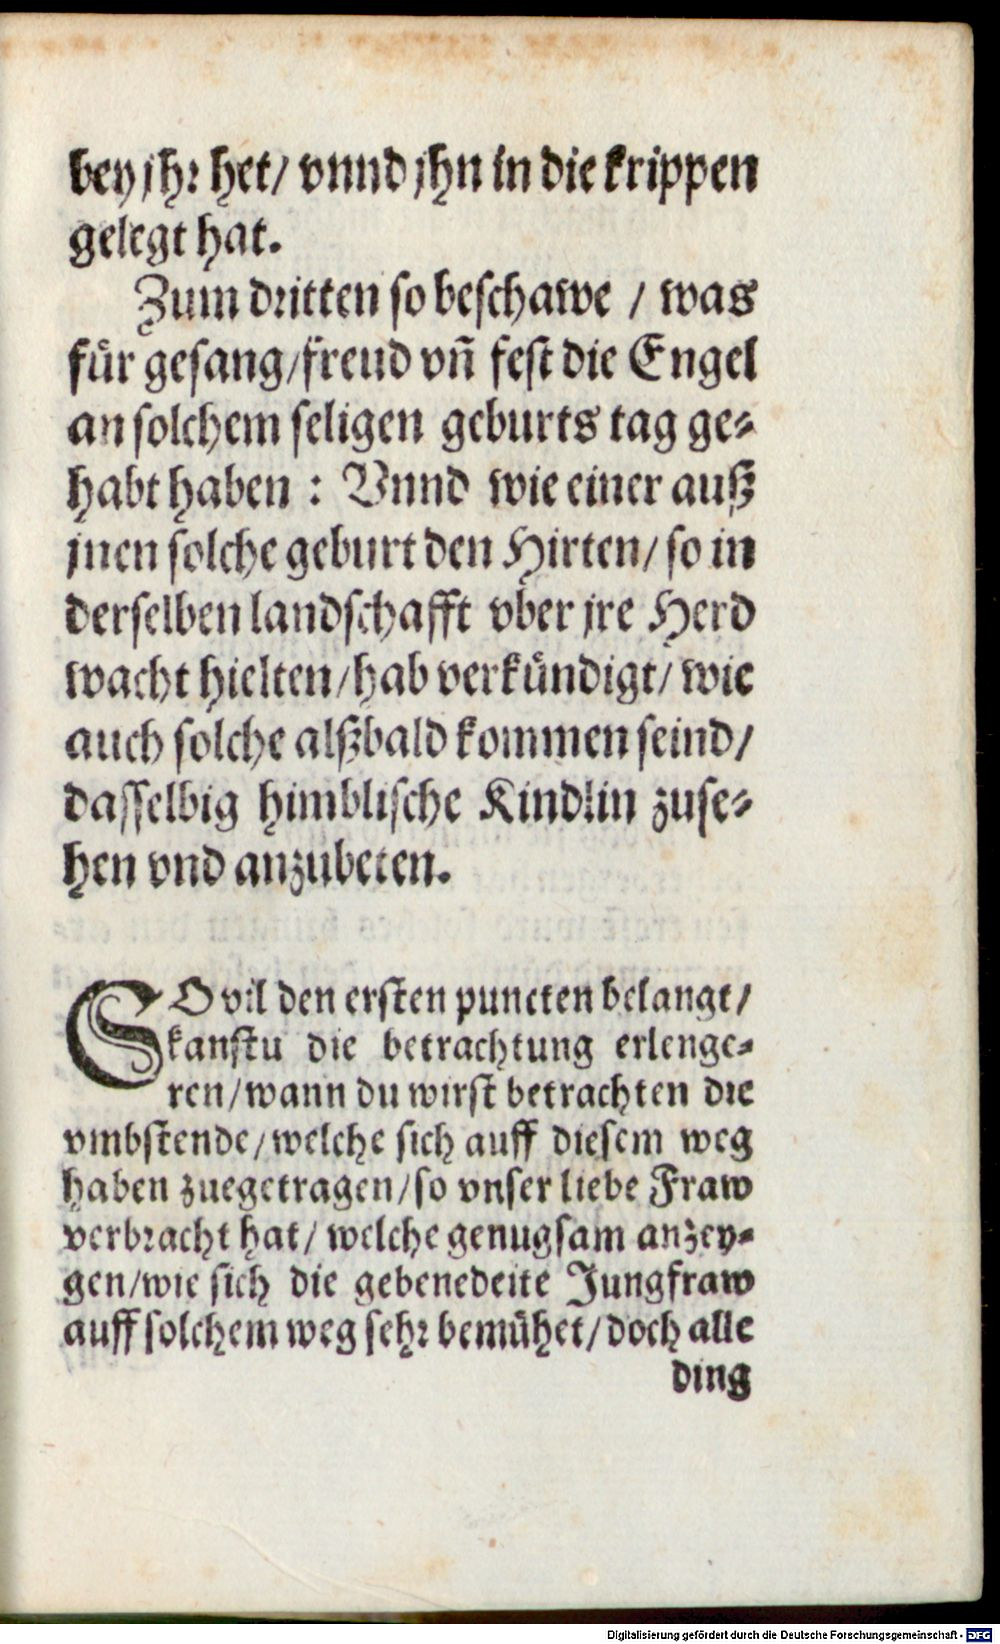 bey jhr het/ vnnd jhn in die krippen
gelegt hat.
Zum dritten so beschawe / was
für gesang/freud vn̄ fest die Engel
an solchem seligen geburts tag ge⸗
habt haben : Vnnd wie einer auß
jnen solche geburt den Hirten/ so in
derselben landschafft vber jre Herd
wacht hielten/hab verkündigt/ wie
auch solche alßbald kommen seind/
dasselbig himblische Kindlin zuse⸗
hen vnd anzubeten.
SO vil den ersten puncten belangt/
kanstu die betrachtung erlenge⸗
ren/wann du wirst betrachten die
vmbstende/welche sich auff diesem weg
haben zuegetragen/so vnser liebe Fraw
verbracht hat/ welche genugsam anzey⸗
gen/wie sich die gebenedeite Jungfraw
auff solchem weg sehr bemühet/doch alle
ding
Digitalisierung gefördert durch die Deutsche Forschungsgemeinschaft - DFG